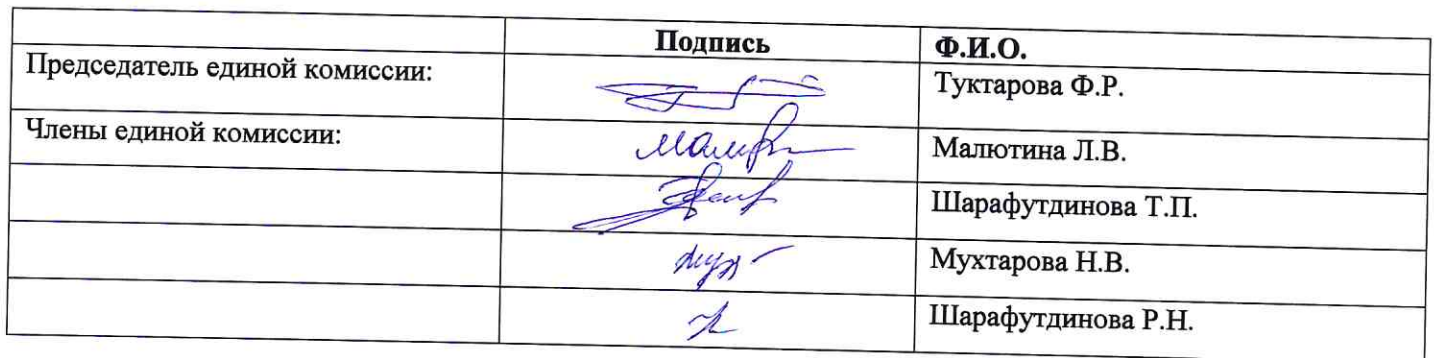 Подпись Ф.И.О.
Председатель единой комиссии: Туктарова Ф.Р.
Члены единой комиссии: Малютина Л.В.
Шарафутдинова Т.П.
Мухтарова Н.В.
Шарафутдинова Р.Н.